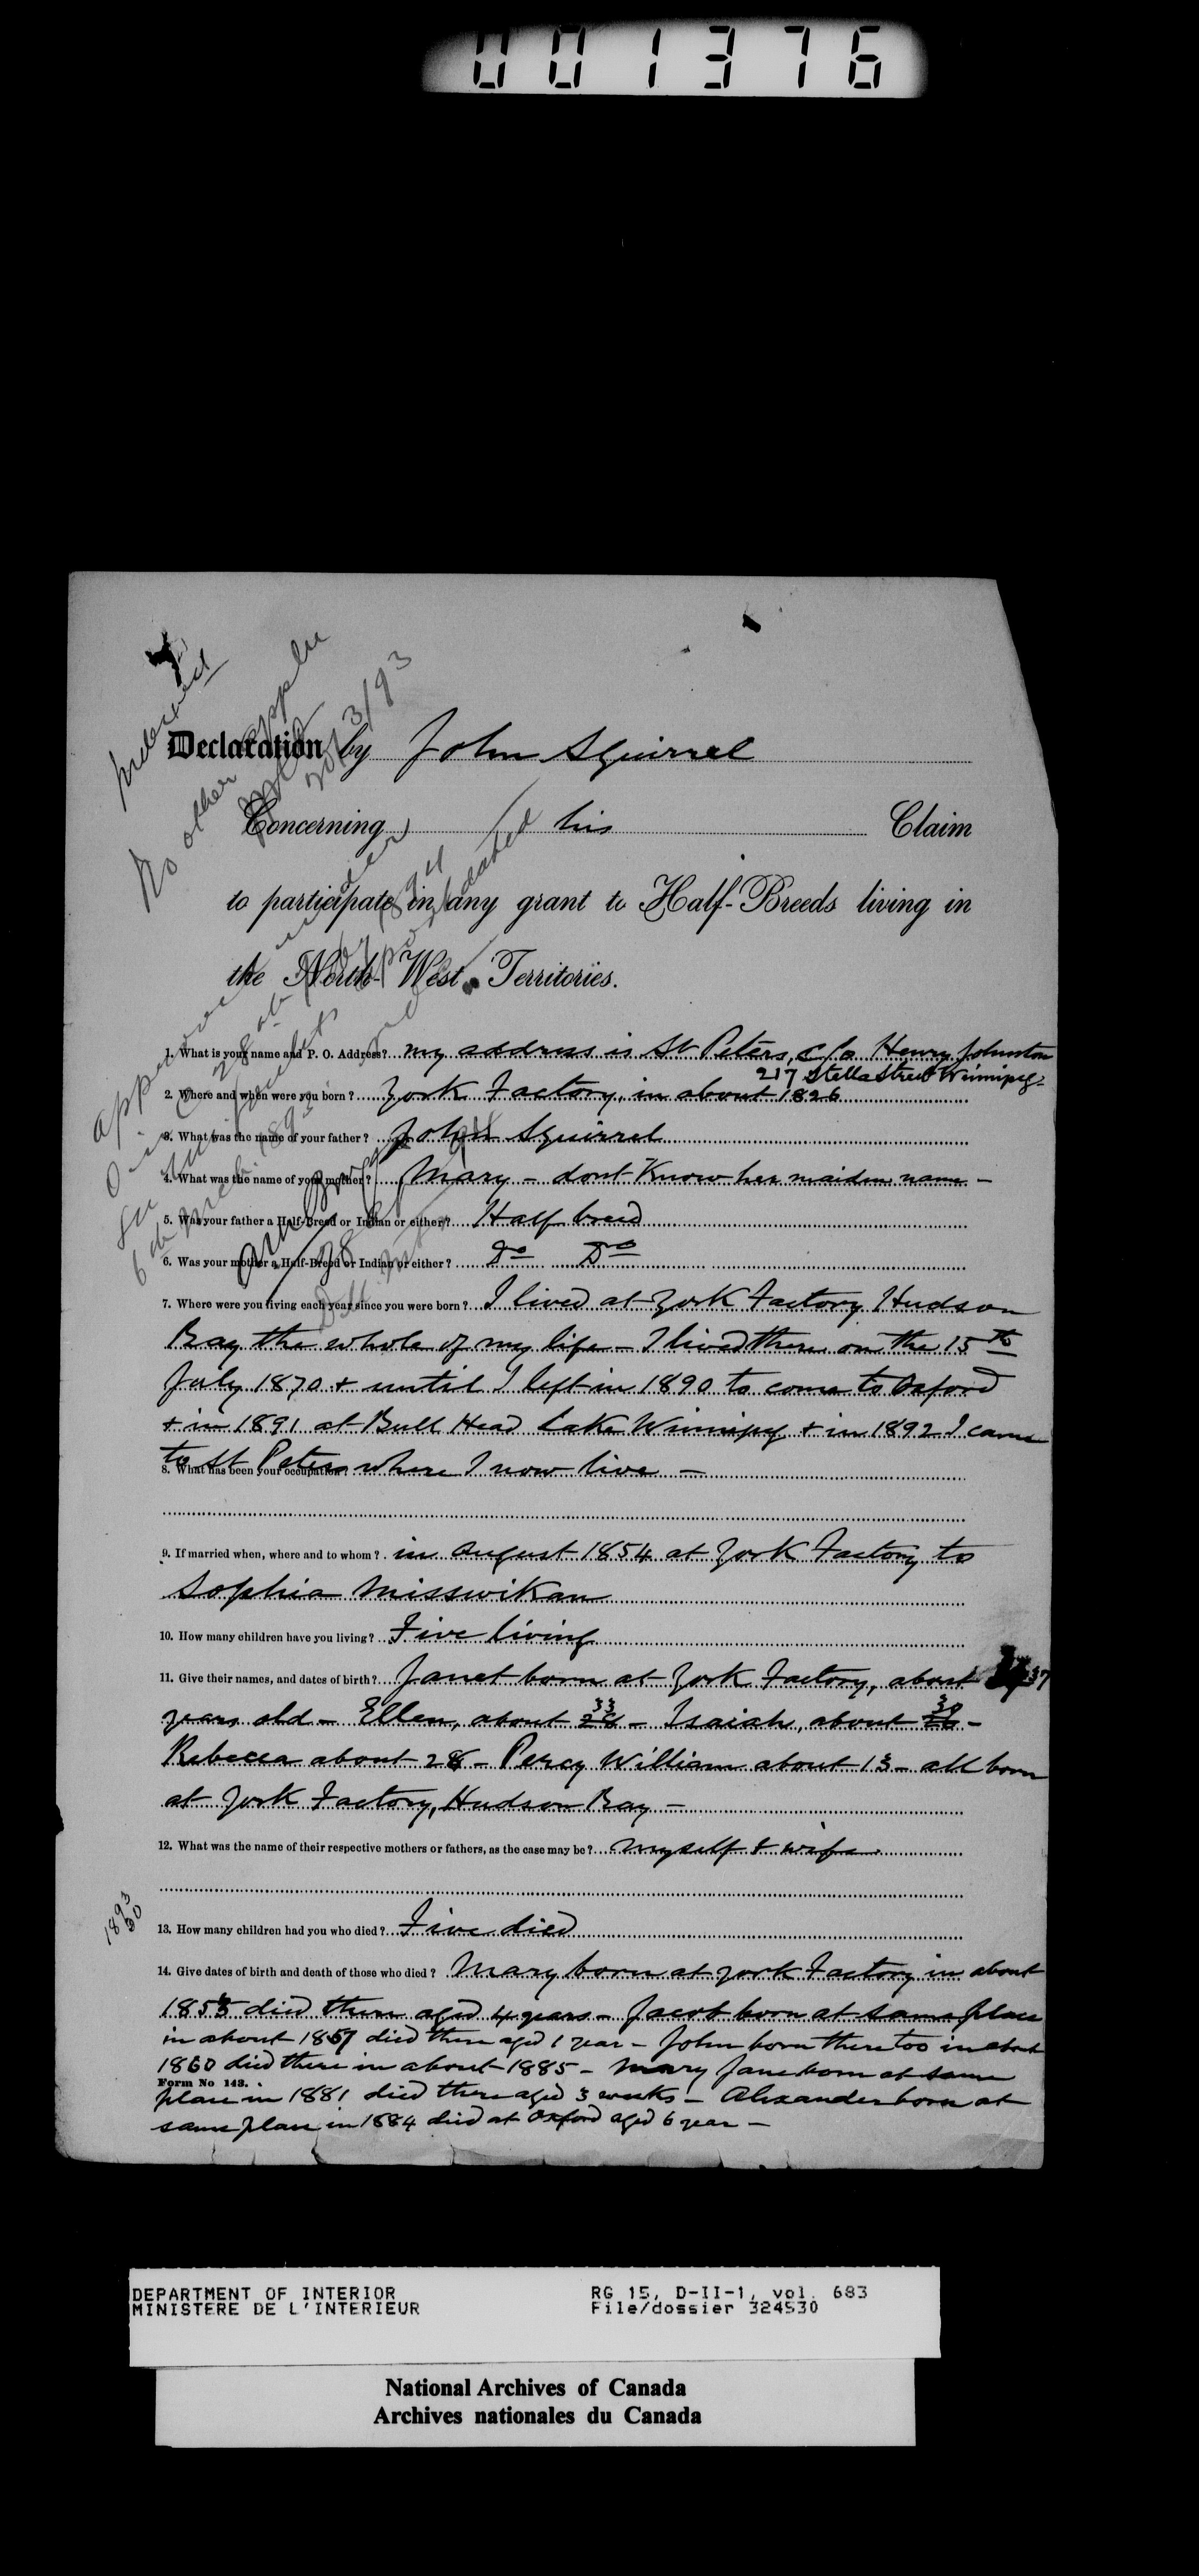 001376
indexed
No other appln
20/3/93
Declaration by John Squirrel
Concerning his Claim
to participate in any grant to Half-Breeds living in
the North-West Territories.
1. What is your name and P. O. Address? My address is St Peters, c/o Henry Johnston
217 Stella Street Winnipeg -
2. Where and when were you born? York Factory, in about 1826
3. What was the name of your father? John Squirrel
4. What was the name of your mother? Mary - dont Know her maiden name -
5. Was your father a Half-Breed or Indian or either? Half breed
6. Was your mother a Half-Breed or Indian or either? Do Do
7. Where were you living each year since you were born? I lived at York Factory Hudson
Bay the whole of my life - I lived there on the 15th
July 1870 + until I left in 1890 to come to Oxford
+ in 1891 at Bull Head Lake Winnipeg + in 1892 I came
to St Peters where I now live -
8. What has been your occupation?
9. If married when, where and to whom? in August 1854 at York Factory to
Sophia Misswikan
10. How many children have you living? Five living
11. Give their names, and dates of birth? Janet born at York Factory, about 37
years old - Ellen, about 33 - Isaiah, about 30 -
Rebecca about 28 - Percy William about 13 - all born
at York Factory, Hudson Bay -
12. What was the name of their respective mothers or fathers, as the case may be? Myself & wife.
1893
30
13. How many children had you who died? Five died
14. Give dates of birth and death of those who died? Mary born at York Factory in about
1855 died there aged 4 years - Jacob born at same place
in about 1857 died there aged 1 year - John born there too in about
1860 died there in about 1885 - Mary Jane born at same
Form No 143.
place in 1881 died there aged 3 weeks - Alexander born at
same place in 1884 died at Oxford aged 6 year -
DEPARTMENT OF INTERIOR
MINISTERE DE L'INTERIEUR
RG 15, D-II-1, vol. 683
File/dossier 324530
National Archives of Canada
Archives nationales du Canada